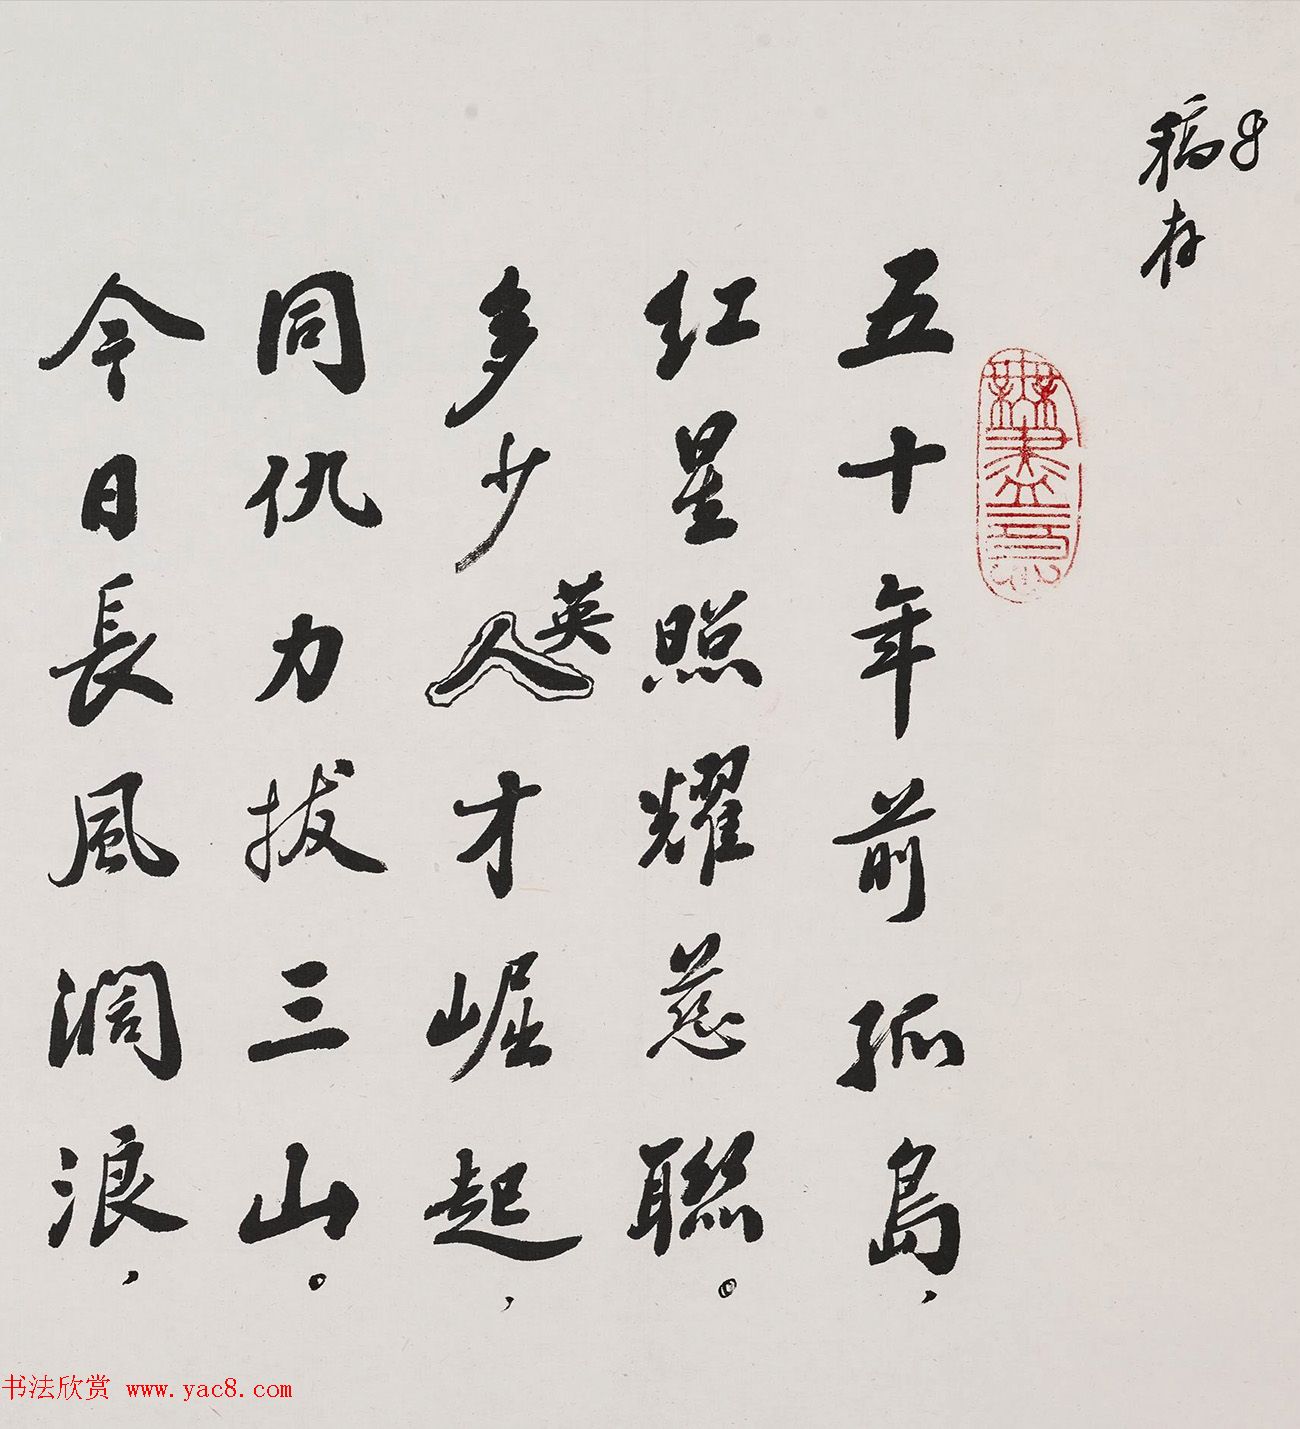 稿存
無盡意
五十年前孤島，
红星照耀慈聯。
多少人英才崛起，
同仇力拔三山。
今日長風濶浪，
书法欣赏 www.yac8.com